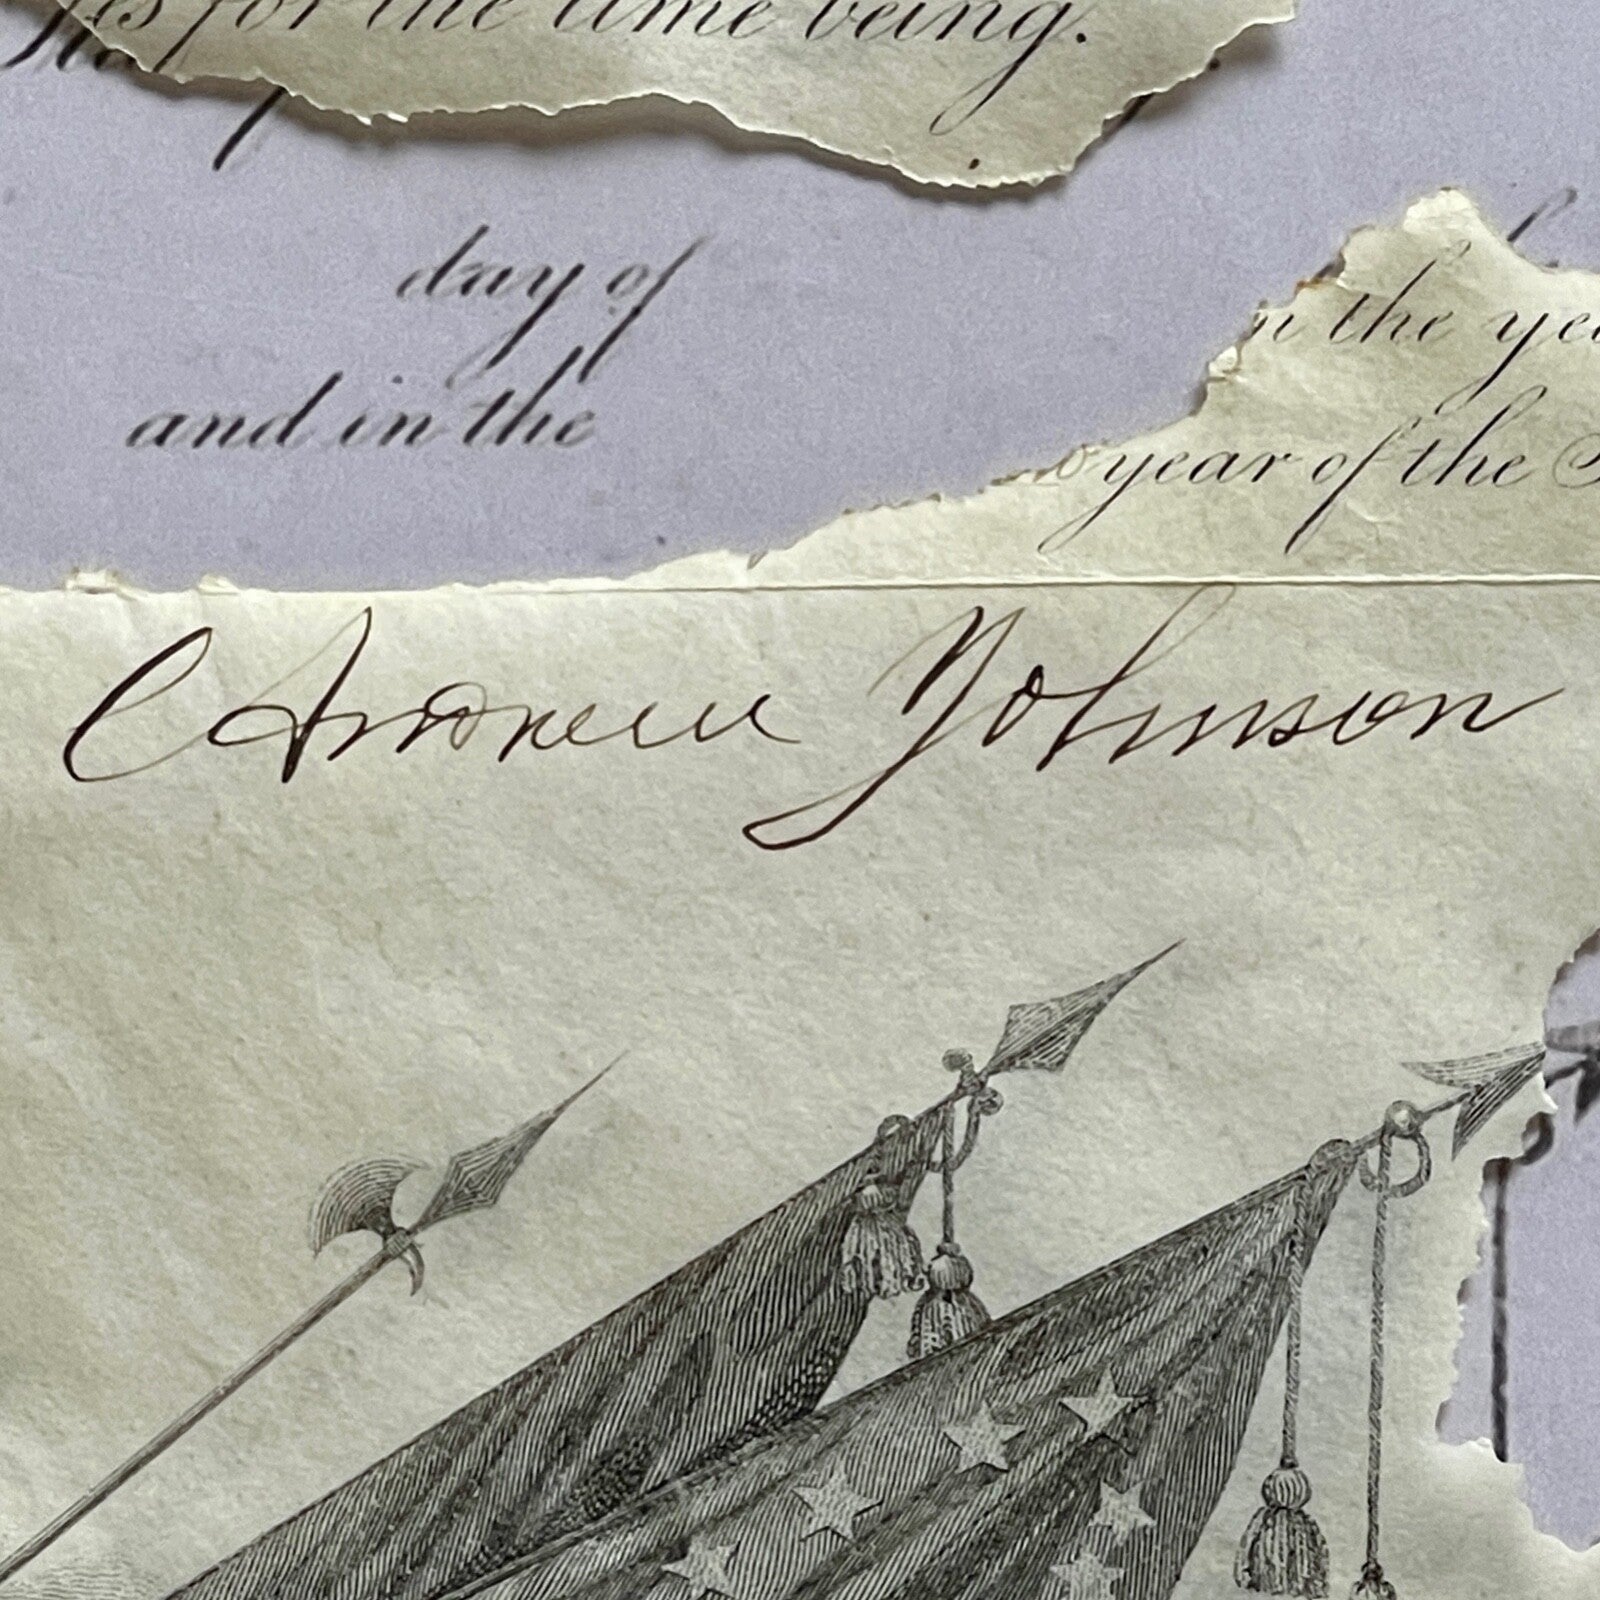 for the time being.
day of
in the
and in the
year of the
Andrew Johnson